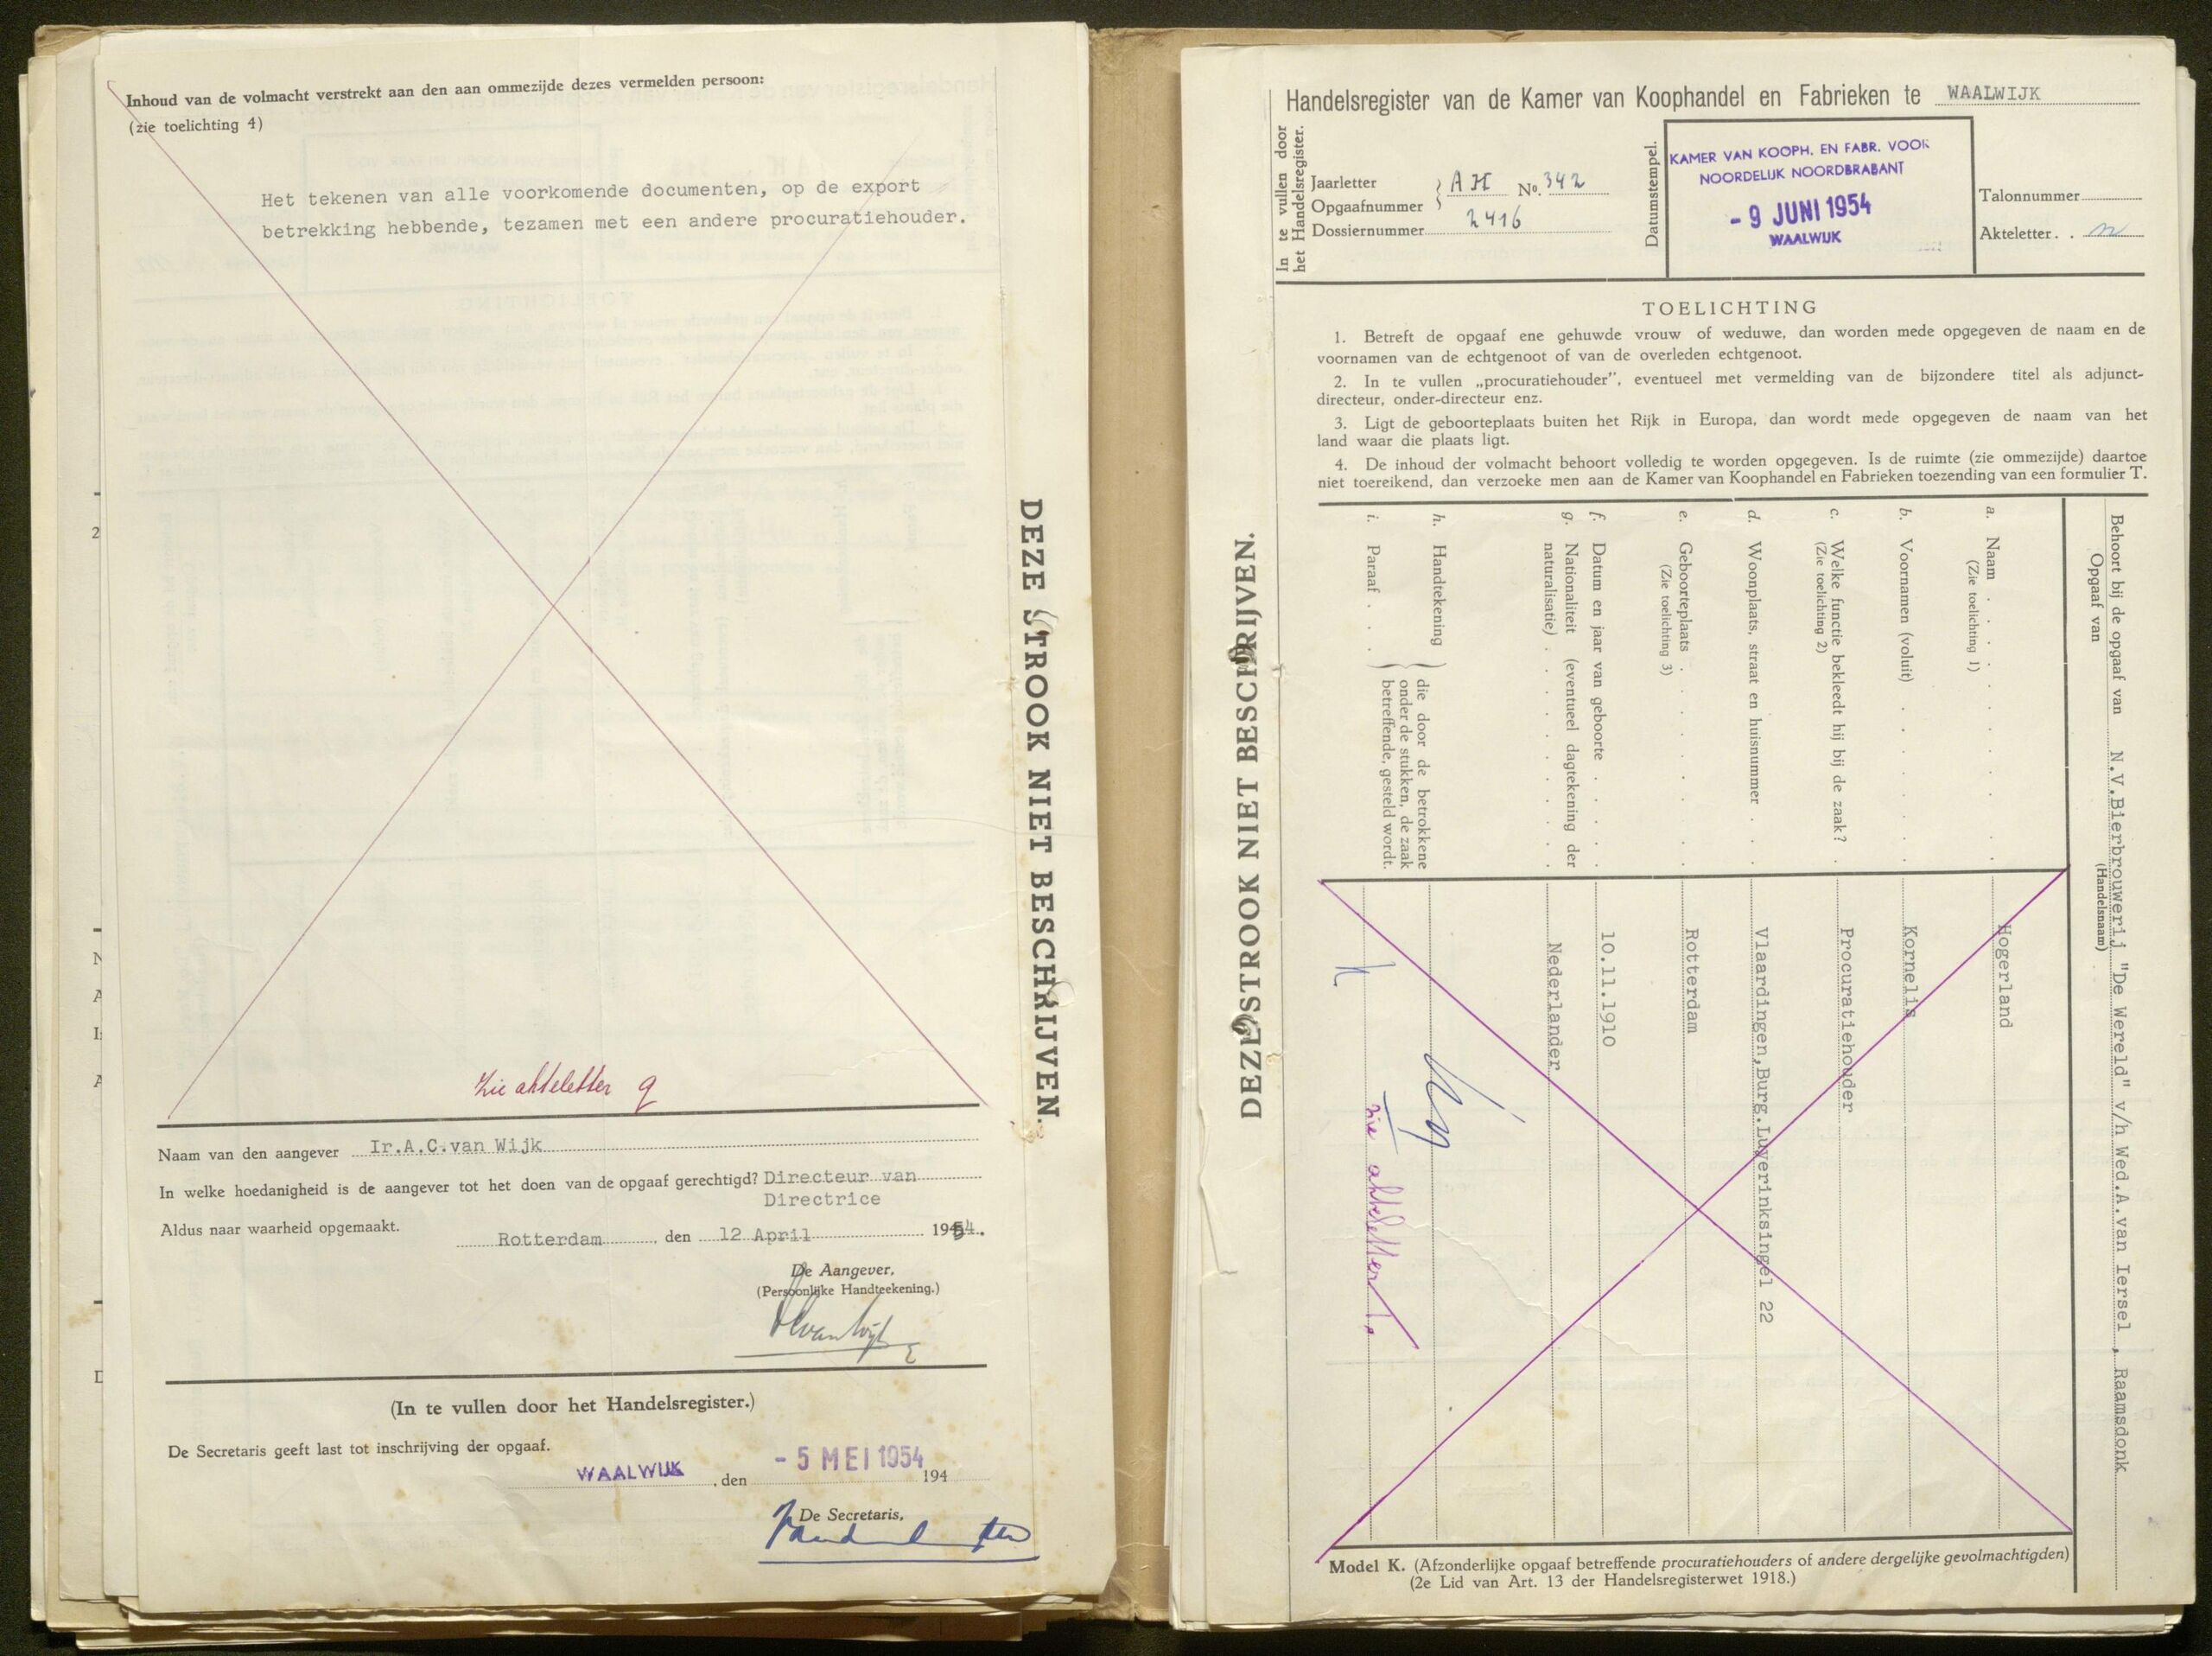 Inhoud van de volmacht verstrekt aan den aan ommezijde dezes vermelden persoon:
(zie toelichting 4)
Het tekenen van alle voorkomende documenten, op de export
betrekking hebbende, tezamen met een andere procuratiehouder.
Zie akteletter q
Naam van den aangever Ir.A.C.van Wijk
In welke hoedanigheid is de aangever tot het doen van de opgaaf gerechtigd? Directeur van
Directrice
Aldus naar waarheid opgemaakt.
Rotterdam, den 12 April 1954.
De Aangever,
(Persoonlijke Handteekening.)
(In te vullen door het Handelsregister.)
De Secretaris geeft last tot inschrijving der opgaaf.
WAALWIJK, den - 5 MEI 1954 194
De Secretaris,
DEZE STROOK NIET BESCHRIJVEN.
DEZE STROOK NIET BESCHRIJVEN.
Handelsregister van de Kamer van Koophandel en Fabrieken te WAALWIJK
In te vullen door
het Handelsregister.
Jaarletter
Opgaafnummer
AH No. 342
Dossiernummer 2416
Datumstempel.
KAMER VAN KOOPH. EN FABR. VOOR
NOORDELIJK NOORDBRABANT
- 9 JUNI 1954
WAALWIJK
Talonnummer
Akteletter . . n
TOELICHTING
1. Betreft de opgaaf ene gehuwde vrouw of weduwe, dan worden mede opgegeven de naam en de
voornamen van de echtgenoot of van de overleden echtgenoot.
2. In te vullen „procuratiehouder”, eventueel met vermelding van de bijzondere titel als adjunct-
directeur, onder-directeur enz.
3. Ligt de geboorteplaats buiten het Rijk in Europa, dan wordt mede opgegeven de naam van het
land waar die plaats ligt.
4. De inhoud der volmacht behoort volledig te worden opgegeven. Is de ruimte (zie ommezijde) daartoe
niet toereikend, dan verzoeke men aan de Kamer van Koophandel en Fabrieken toezending van een formulier T.
Behoort bij de opgaaf van N.V.Bierbrouwerij "De Wereld" v/h Wed.A.van Iersel , Raamsdonk
Opgaaf van
(Handelsnaam)
a. Naam . . . . . . . . Hogerland
(Zie toelichting 1)
b. Voornamen (voluit) . . . . . Kornelis
c. Welke functie bekleedt hij bij de zaak? . Procuratiehouder
(Zie toelichting 2)
d. Woonplaats, straat en huisnummer . . Vlaardingen,Burg.Luyerinksingel 22
e. Geboorteplaats . . . . . . Rotterdam
(Zie toelichting 3)
f. Datum en jaar van geboorte . . . . 10.11.1910
g. Nationaliteit (eventueel dagtekening der
naturalisatie) . . . . . . . Nederlander
h. Handtekening
i. Paraaf . . .
die door de betrokkene
onder de stukken, de zaak
betreffende, gesteld wordt.
zie akteletter r.
Model K. (Afzonderlijke opgaaf betreffende procuratiehouders of andere dergelijke gevolmachtigden)
(2e Lid van Art. 13 der Handelsregisterwet 1918.)